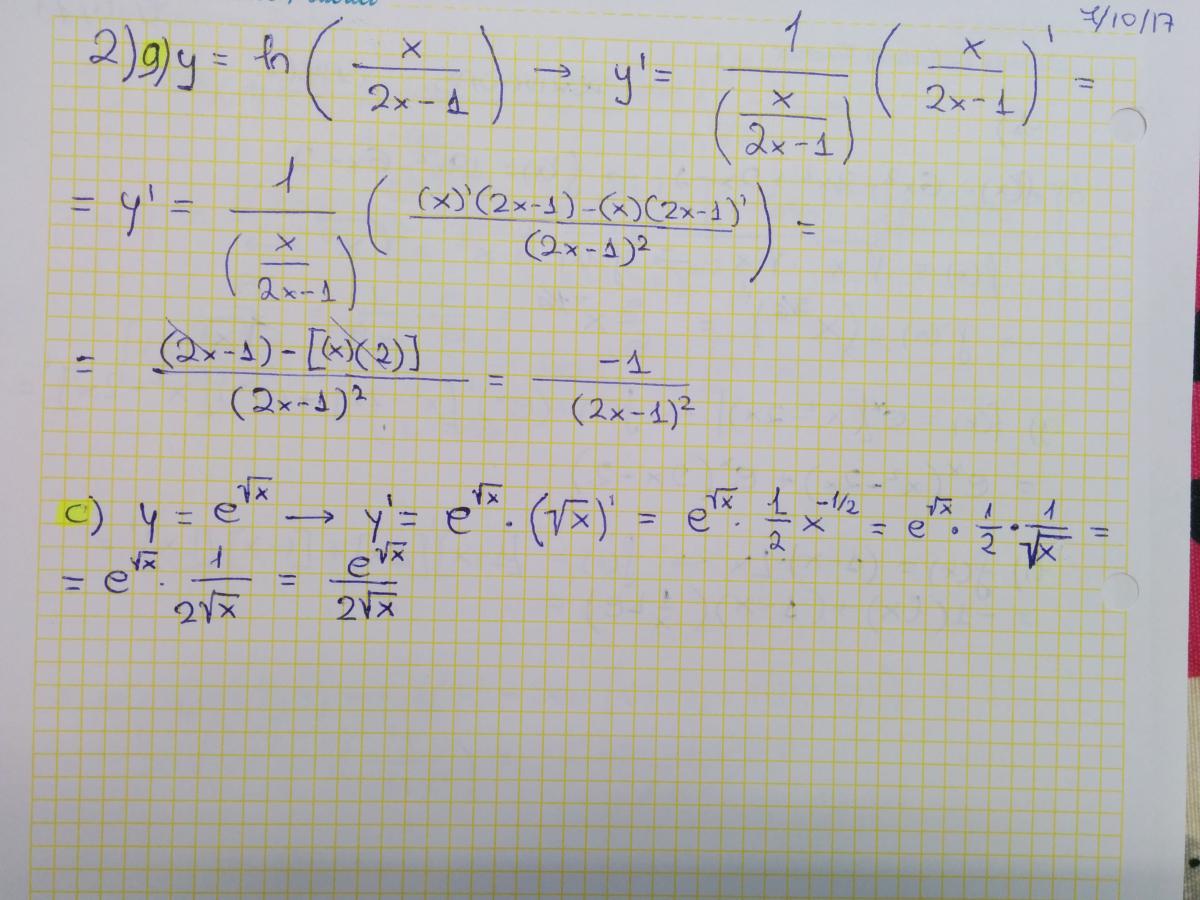 7/10/17
2) g) y = ln (x/(2x-1)) → y' = 1/(x/(2x-1)) (x/(2x-1))' =
= y' = 1/(x/(2x-1)) (((x)'(2x-1)-(x)(2x-1)')/(2x-1)²) =
= ((2x-1)-[(x)(2)])/(2x-1)² = -1/(2x-1)²
c) y = e^√x → y' = e^√x · (√x)' = e^√x · 1/2 x^(-1/2) = e^√x · 1/2 · 1/√x =
= e^√x · 1/(2√x) = e^√x/(2√x)